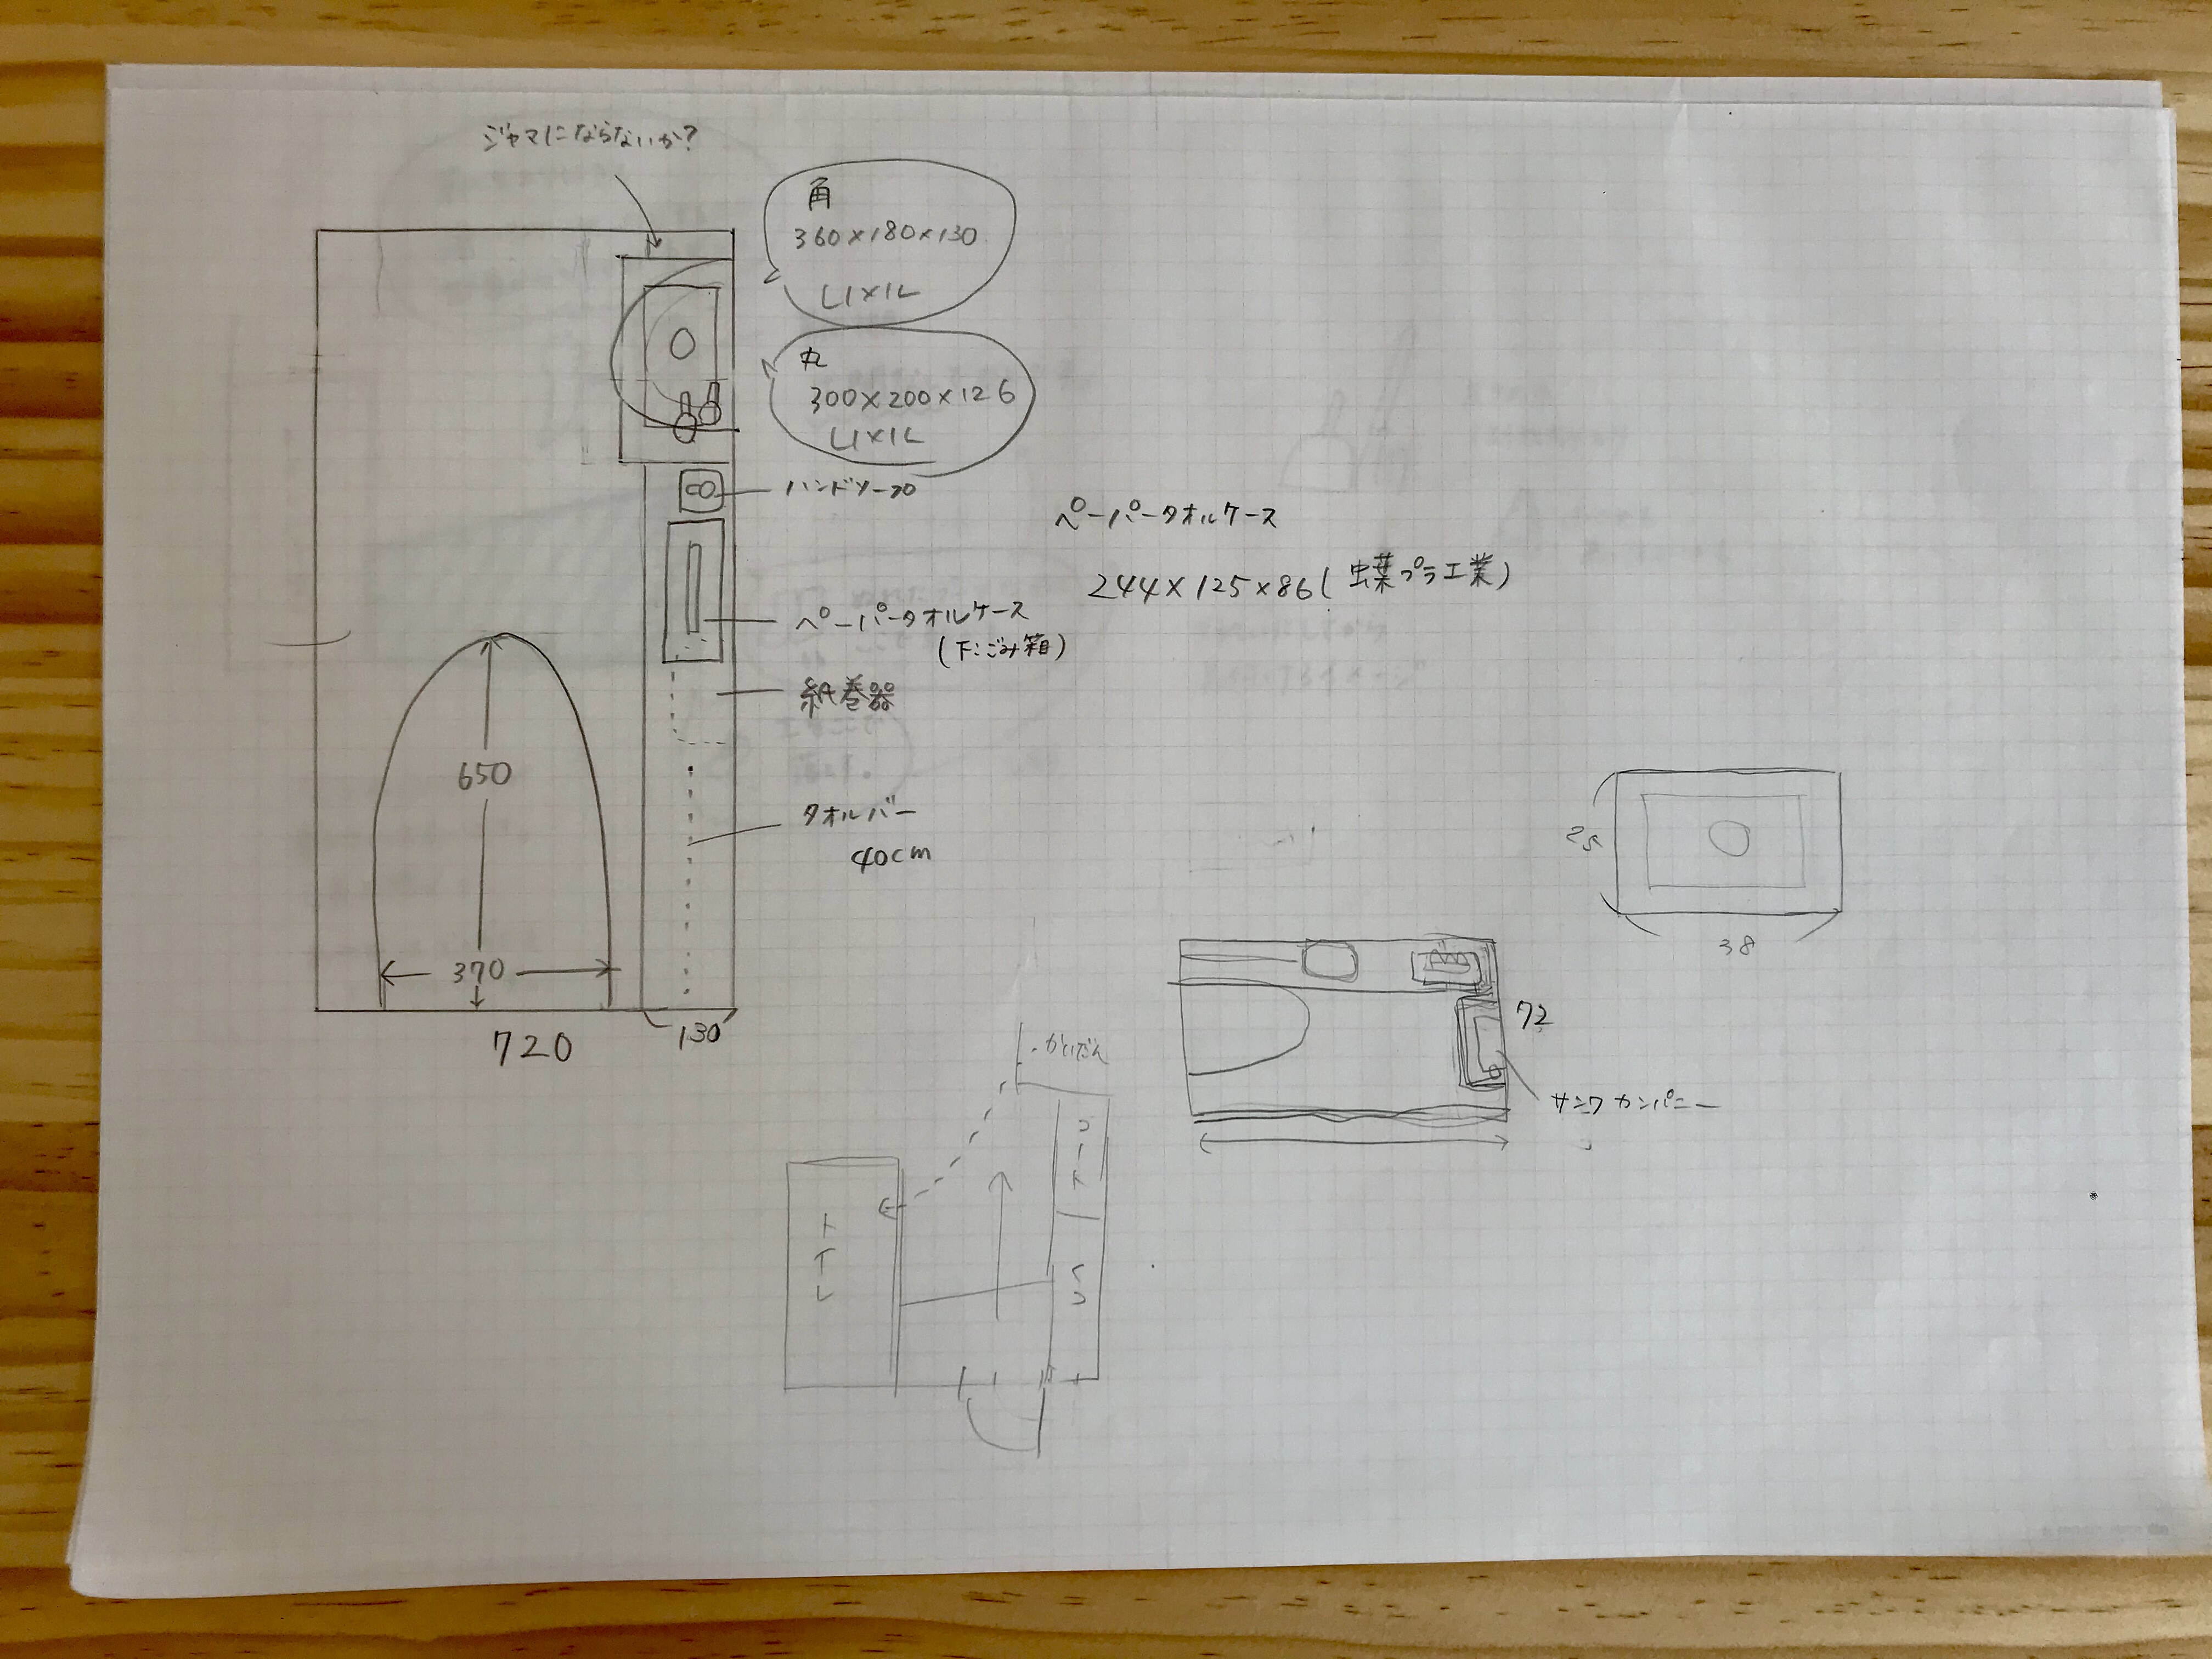 ジャマにならないか?
角
360×180×130
LIXIL
丸
300×200×126
LIXIL
ハンドソープ
ペーパータオルケース
(下:ごみ箱)
紙巻器
タオルバー
40cm
650
370
720
130
ペーパータオルケース
244×125×86(虫葉プラ工業)
25
38
72
サンワカンパニー
かいだん
コート
トイレ
くつ